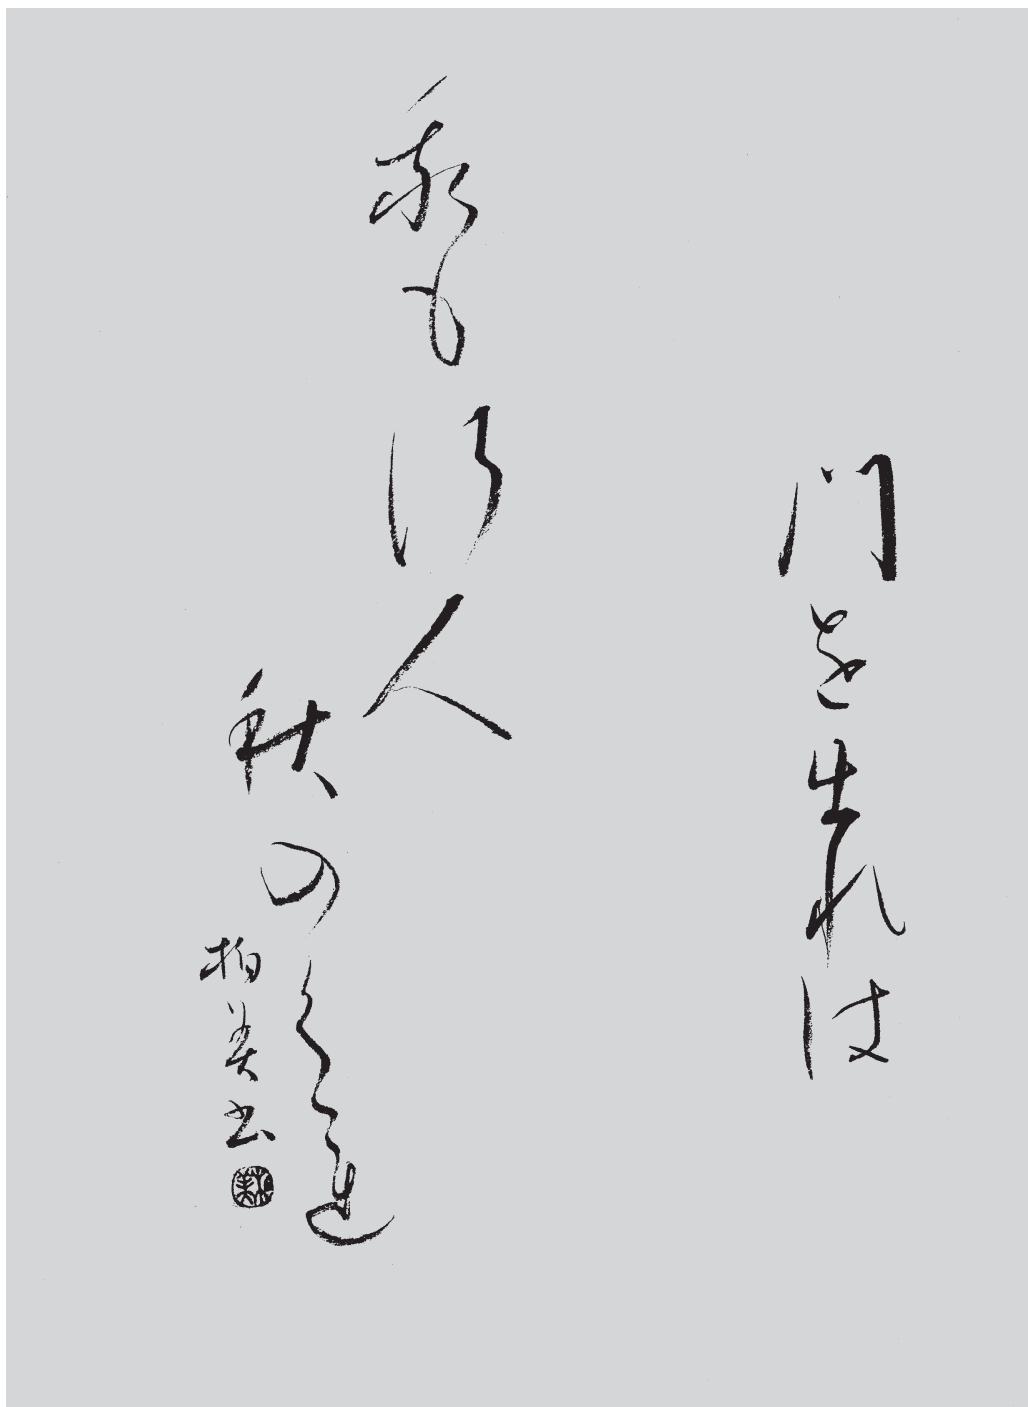 門を出れば
我も行人
秋のくれ
柏美書